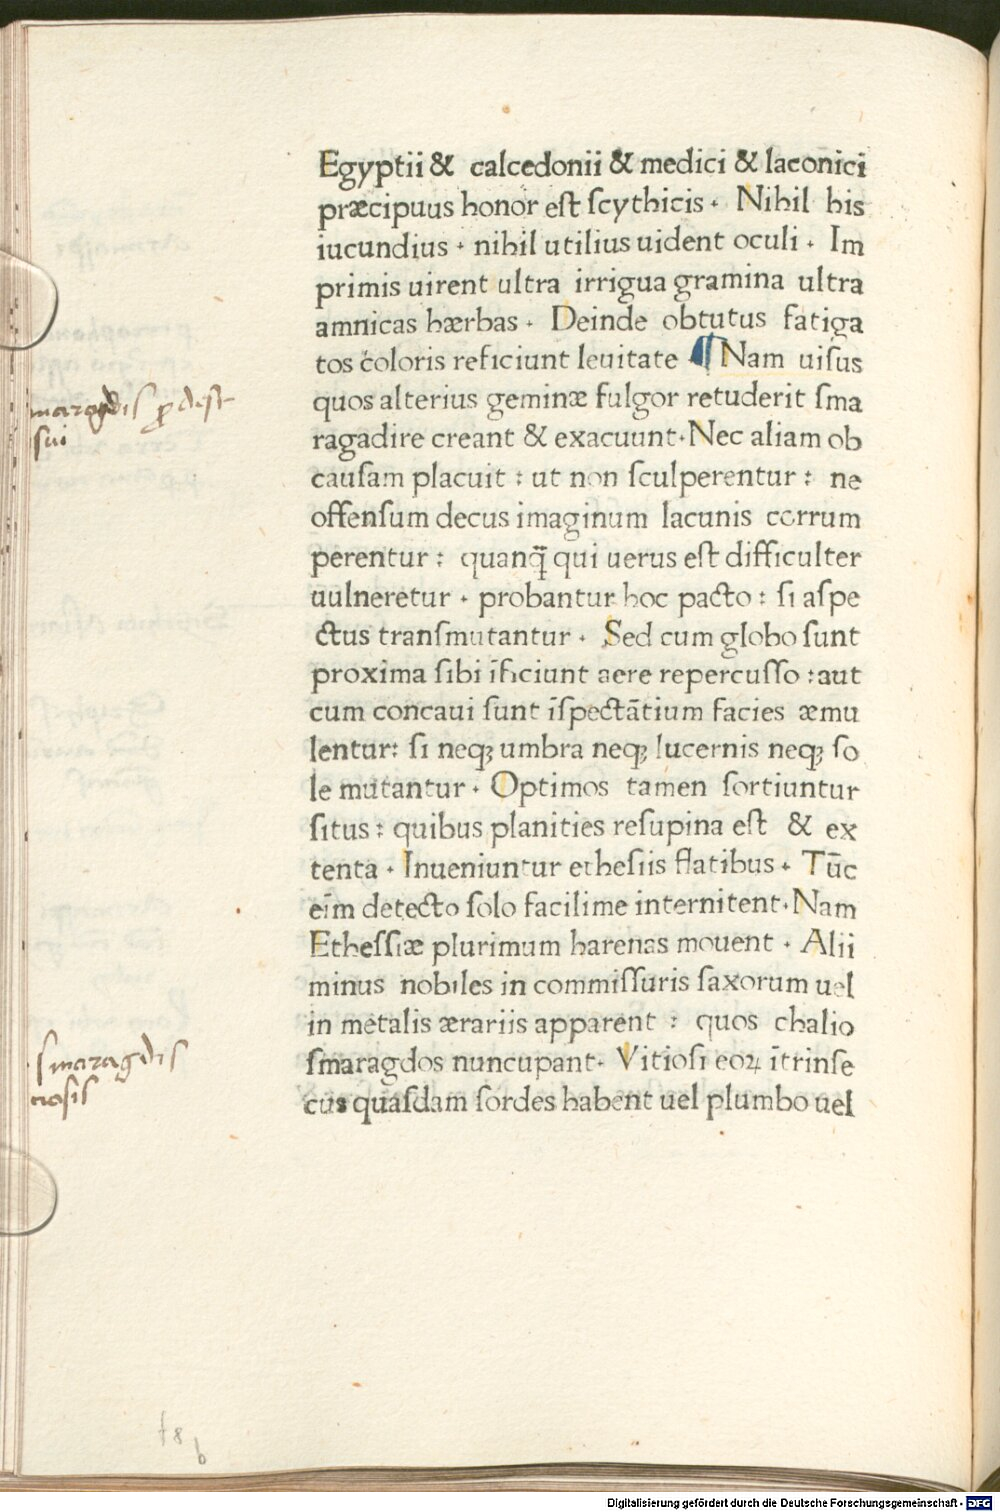 Egyptii & calcedonii & medici & laconici
præcipuus honor est scythicis. Nihil his
iucundius. nihil utilius uident oculi. Im
primis uirent ultra irrigua gramina ultra
amnicas hærbas. Deinde obtutus fatiga
tos coloris reficiunt leuitate ¶ Nam uisus
quos alterius geminæ fulgor retuderit sma
ragadire creant & exacuunt. Nec aliam ob
causam placuit : ut non sculperentur : ne
offensum decus imaginum lacunis corrum
perentur : quanq̄ qui uerus est difficulter
uulneretur. probantur hoc pacto : si aspe
ctus transmutantur. Sed cum globo sunt
proxima sibi īficiunt aere repercusso : aut
cum concaui sunt īspectātium facies æmu
lentur : si neqꝫ umbra neqꝫ lucernis neqꝫ so
le mutantur. Optimos tamen sortiuntur
situs : quibus planities resupina est & ex
tenta. Inueniuntur ethesiis flatibus. Tūc
eīm detecto solo facilime internitent. Nam
Ethessiæ plurimum harenas mouent. Alii
minus nobiles in commissuris saxorum uel
in metalis ærariis apparent : quos chalio
smaragdos nuncupant. Vitiosi eoꝝ ītrinse
cus quasdam sordes habent uel plumbo uel
maragdis ꝓdest
sui
smaragdis
f8
b
Digitalisierung gefördert durch die Deutsche Forschungsgemeinschaft - DFG